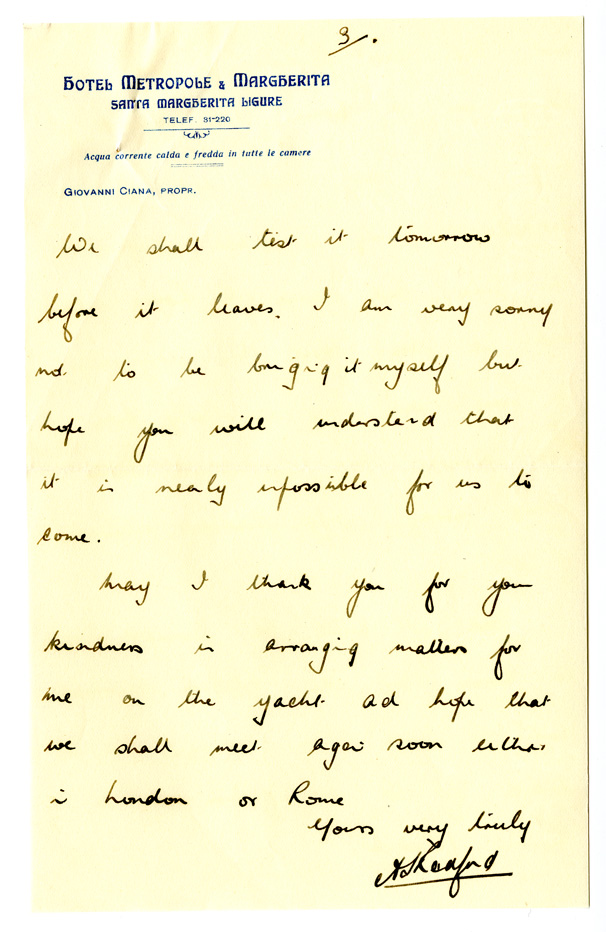 3/.
HOTEL METROPOLE & MARGHERITA
SANTA MARGHERITA LIGURE
TELEF. 81-220
Acqua corrente calda e fredda in tutte le camere
GIOVANNI CIANA, PROPR.
We shall test it tomorrow
before it leaves. I am very sorry
not to be bringing it myself but
hope you will understand that
it is nearly impossible for us to
come.
May I thank you for your
kindness in arranging matters for
me on the yacht and hope that
we shall meet again soon either
in London or Rome
Yours very truly